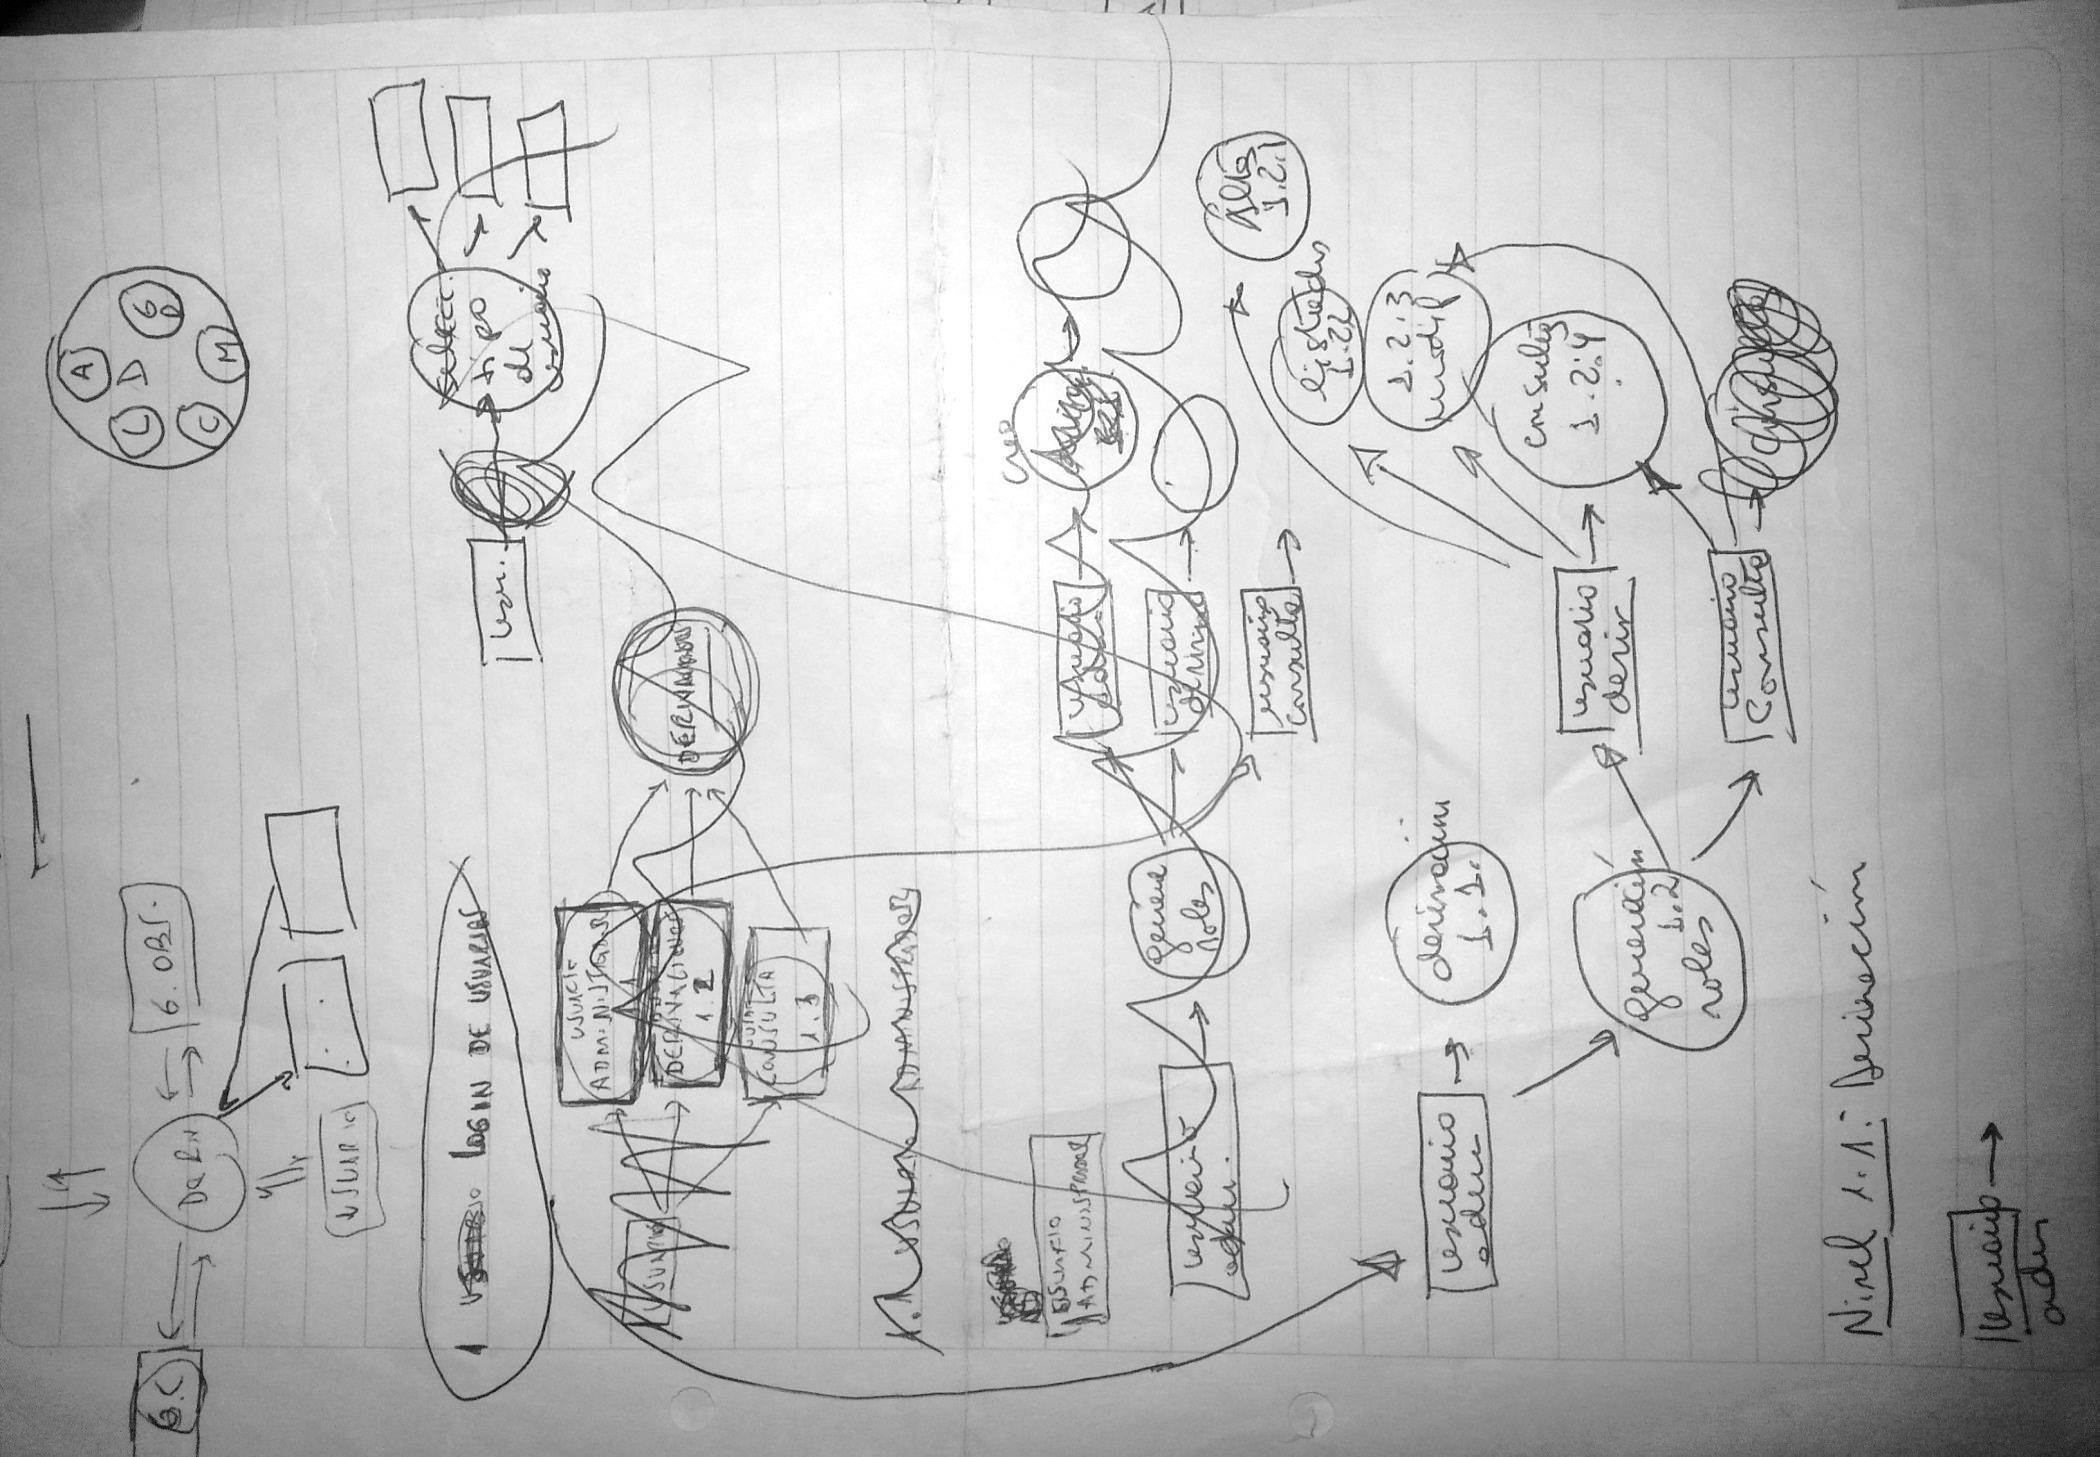 A
D
L
C
M
G.C
DGRN
G. OBS.
USUARIO
1 LOGIN DE USUARIOS
USUARIO
USUARIO
ADMINISTRADOR
1.1
DERIVACIONES
1.2
CONSULTA
1.3
DERIVADOR
usr.
selecc.
tipo
de
usuario
1.1 USUARIO ADMINISTRADOR
USUARIO
ADMINISTRADOR
usuario
adm.
genera
roles
usuario
adm.
usuario
deriva
usuario
consulta
usuario
adm
derivación
1.1.
generación
1.2
roles
usuario
deriv
usuario
consulta
alta
1.2.1
listados
1.2.2
1.2.3
modif
consulta
1.2.4
Nivel 1.1: Derivación
usuario
adm